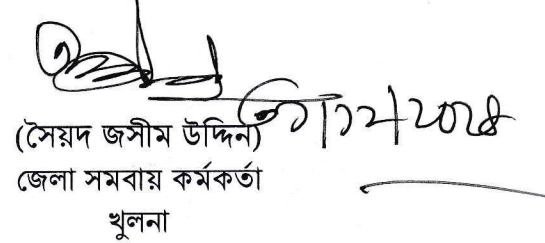 (সৈয়দ জসীম উদ্দিন)
জেলা সমবায় কর্মকর্তা
খুলনা